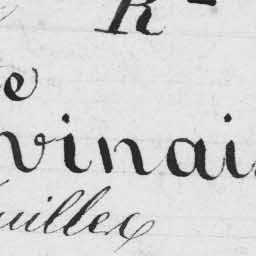 R
e
vinais
uillex